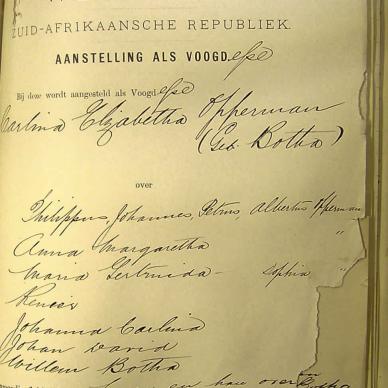 ZUID-AFRIKAANSCHE REPUBLIEK.
AANSTELLING ALS VOOGD.esse
Bij deze wordt aangesteld als Voogdesse
Carlina Elizabetha Opperman
(Geb. Botha)
over
Philippus, Johannes, Petrus Albertus Opperman
Anna Margaretha "
Maria Gertruida - Sophia "
Johanna Carlina
Johan David
Willem Botha
en hau over